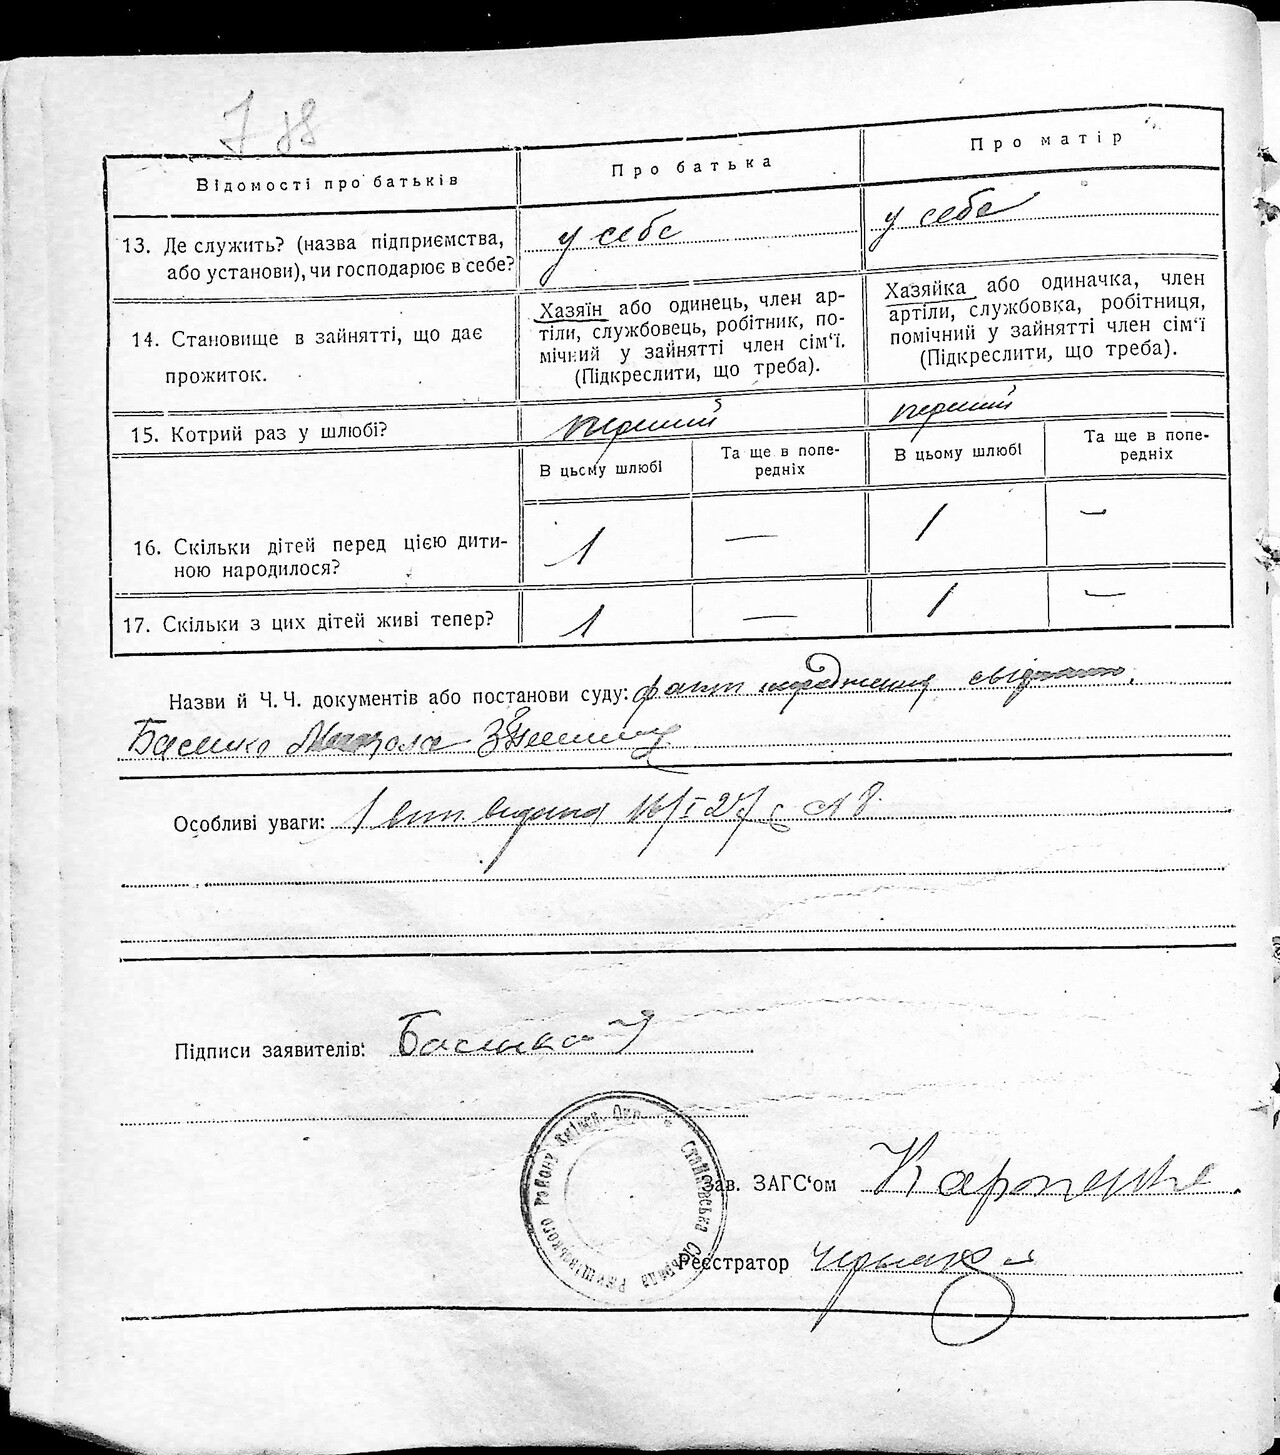 Відомості про батьків
Про батька
Про матір
13. Де служить? (назва підприємства,
або установи), чи господарює в себе?
у себе
у себе
14. Становище в зайнятті, що дає
прожиток.
Хазяїн або одинець, член ар-
тіли, службовець, робітник, по-
мічний у зайнятті член сім'ї.
(Підкреслити, що треба).
Хазяйка або одиначка, член
артіли, службовка, робітниця,
помічний у зайнятті член сім'ї
(Підкреслити, що треба).
15. Котрий раз у шлюбі?
перший
перший
В цьому шлюбі
Та ще в попе-
редніх
В цьому шлюбі
Та ще в попе-
редніх
16. Скільки дітей перед цією дити-
ною народилося?
1 — 1 —
17. Скільки з цих дітей живі тепер?
1 — 1 —
Назви й Ч. Ч. документів або постанови суду: факт народження
Особливі уваги: 1 вип. видана 16/I 27
Підписи заявителів:
Ржищівського району Київськ. Окр. Стайківська Сільрада
Зав. ЗАГС'ом Карпенко
Реєстратор